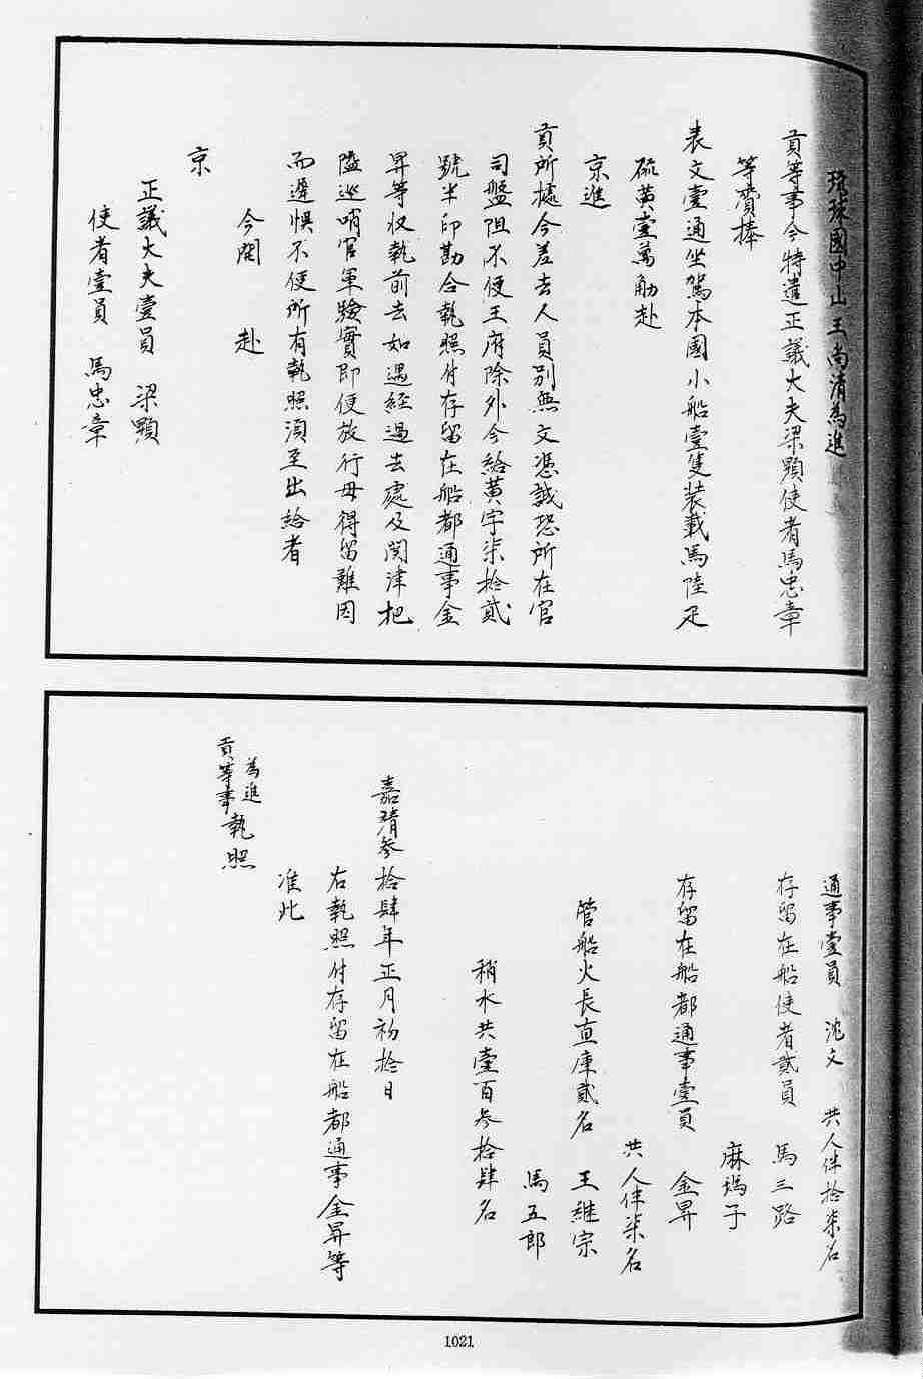 琉球國中山王尚清為進
貢等事今特遣正議大夫梁顯使者馬忠章
等賫捧
表文壹通坐駕本國小船壹隻裝載馬陸疋
硫黃壹萬觔赴
京進
貢所據今差去人員別無文憑誠恐所在官
司盤阻不便王府除外今給黃字柒拾貳
號半印勘合執照付存留在船都通事金
昇等收執前去如遇經過去處及関津把
隘巡哨官軍驗實即便放行毋得留難因
而遲悞不便所有執照湏至出給者
今開　赴
京
正議大夫壹員　梁顯
使者壹員　馬忠章
通事壹員　沈文　共人伴拾柒名
存留在船使者貳員　馬三路
麻塢子
存留在船都通事壹員　金昇
共人伴柒名
管船火長直庫貳名　王繼宗
馬五郎
稍水共壹百參拾肆名
嘉靖參拾肆年正月初拾日
右執照付存留在船都通事金昇等
准此
為進
貢等事執照
1021